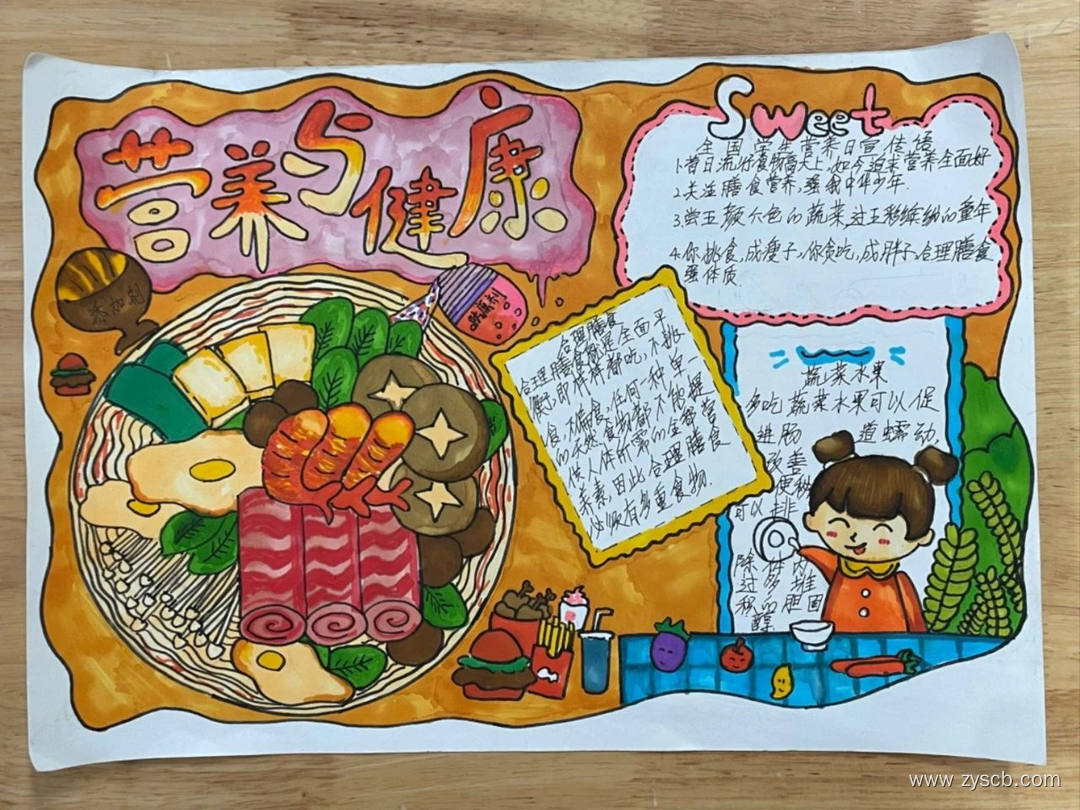 营养与健康
添加剂
Sweet
全国学生营养日宣传语
1.昔日流行食物高大上,如今迎来营养全面好
2.关注膳食营养,强我中华少年.
3.尝五颜六色的蔬菜,过五彩缤纷的童年
4.你挑食,成瘦子,你贪吃,成胖子,合理膳食
强体质.
合理膳食
合理膳食就是全面平
衡,即样样都吃,不挑
食,不偏食,任何一种单一
的天然食物都不能提
供人体所需的全部营
养素,因此,合理膳食
必须有多重食物.
蔬菜水果
多吃蔬菜水果可以促
进肠 道蠕动.
改善
便秘
可以排
除体内
过多堆
积的胆固
醇
www.zyscb.com